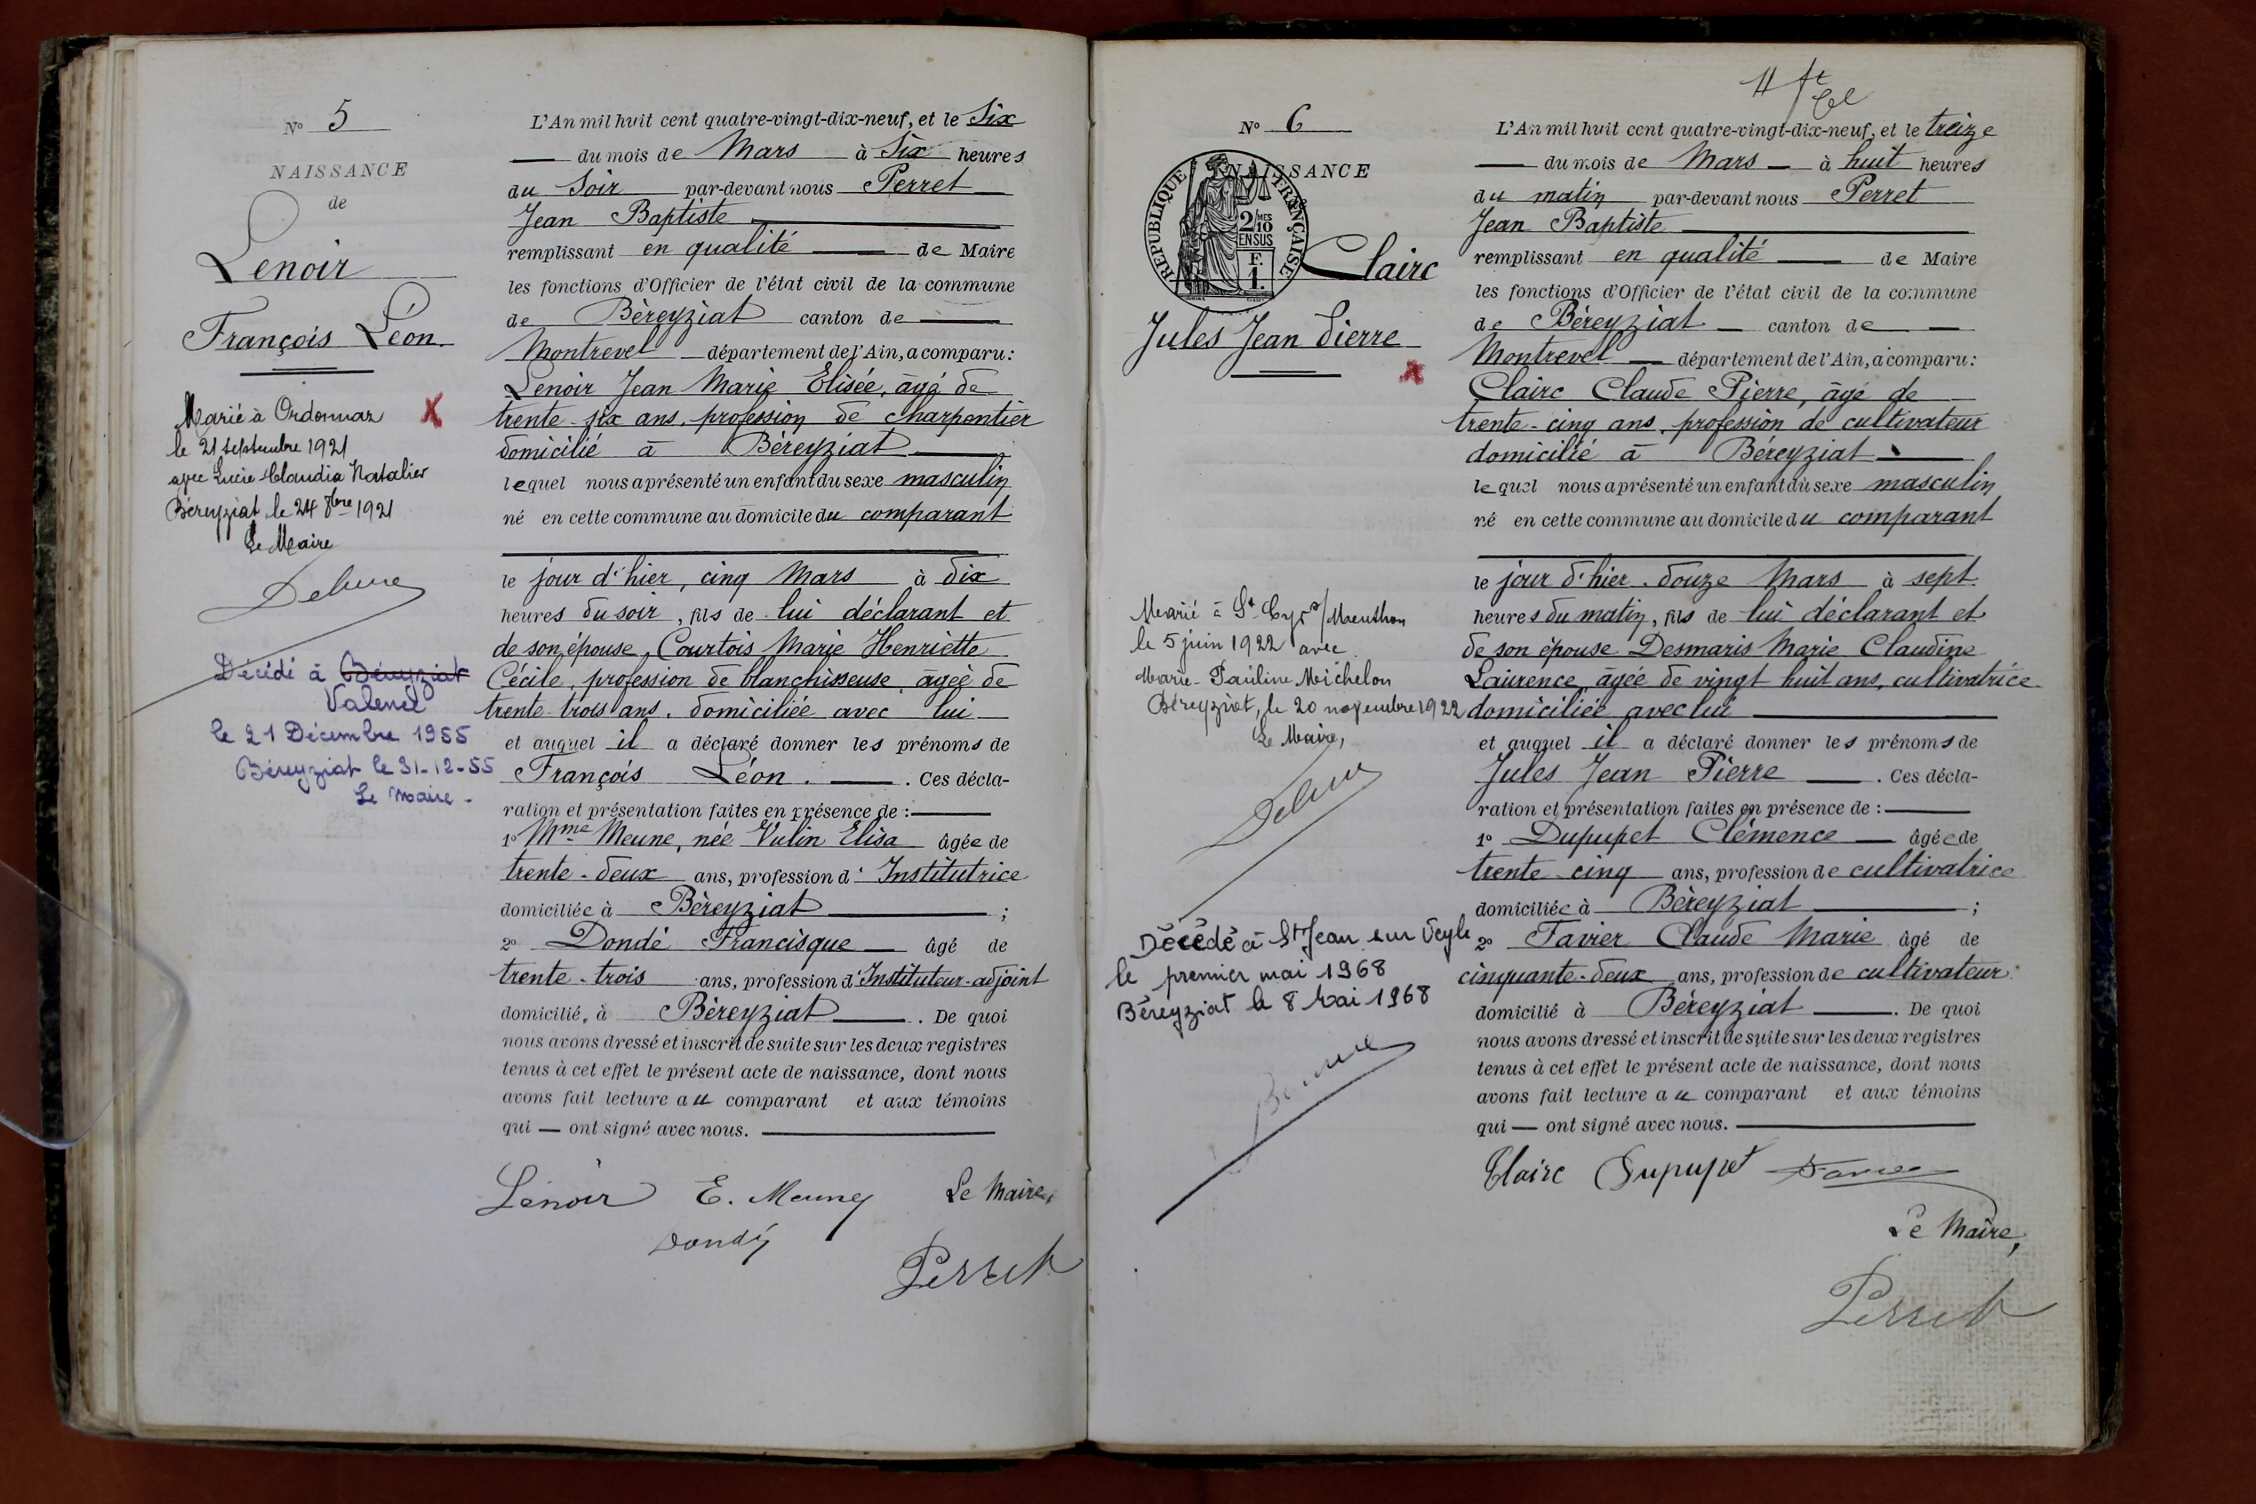 N° 5
NAISSANCE
de
Lenoir
François Léon
Marié à Ordonnaz
le 21 septembre 1921
avec Lucie Claudia Natalier
Béreyziat le 24 8bre 1921
Le Maire
Décédé à Béreyziat
Valence
le 21 Décembre 1955
Béreyziat le 31-12-55
Le Maire
L'An mil huit cent quatre-vingt-dix-neuf, et le Six
du mois de Mars à Six heures
du Soir par-devant nous Perret
Jean Baptiste
remplissant en qualité de Maire
les fonctions d'Officier de l'état civil de la commune
de Béreyziat canton de
Montrevel département de l'Ain, a comparu:
Lenoir Jean Marie Elisée, âgé de
trente six ans, profession de charpentier
domicilié à Béreyziat
lequel nous a présenté un enfant du sexe masculin
né en cette commune au domicile du comparant
le jour d'hier, cinq Mars à dix
heures du soir, fils de lui déclarant et
de son épouse, Courtois Marie Henriette
Cécile, profession de blanchisseuse, âgée de
trente-trois ans, domiciliée avec lui
et auquel il a déclaré donner les prénoms de
François Léon. Ces décla-
ration et présentation faites en présence de :
1° Mme Meune, née Vulin Elisa âgée de
trente-deux ans, profession d'Institutrice
domiciliée à Béreyziat ;
2° Dondé Francisque âgé de
trente-trois ans, profession d'Instituteur-adjoint
domicilié, à Béreyziat. De quoi
nous avons dressé et inscrit de suite sur les deux registres
tenus à cet effet le présent acte de naissance, dont nous
avons fait lecture au comparant et aux témoins
qui — ont signé avec nous.
Lenoir E. Meune Le Maire,
Dondé
Perret
N° 6
NAISSANCE
REPUBLIQUE FRANÇAISE
2/10 MES
EN SUS
F.
1.
Clairc
Jules Jean Pierre
Marié à St Cyr s/ Menthon
le 5 juin 1922 avec
Marie-Pauline Michelon
Béreyziat, le 20 novembre 1922
Le Maire,
Décédé à St Jean sur Veyle
le premier mai 1968
Béreyziat le 8 Mai 1968
L'An mil huit cent quatre-vingt-dix-neuf, et le treize
du mois de Mars à huit heures
du matin par-devant nous Perret
Jean Baptiste
remplissant en qualité de Maire
les fonctions d'Officier de l'état civil de la commune
de Béreyziat canton de
Montrevel département de l'Ain, a comparu:
Clairc Claude Pierre, âgé de
trente-cinq ans, profession de cultivateur
domicilié à Béreyziat
lequel nous a présenté un enfant du sexe masculin
né en cette commune au domicile du comparant
le jour d'hier, douze Mars à sept
heures du matin, fils de lui déclarant et
de son épouse Desmaris Marie Claudine
Laurence, âgée de vingt huit ans, cultivatrice
domiciliée avec lui
et auquel il a déclaré donner les prénoms de
Jules Jean Pierre. Ces décla-
ration et présentation faites en présence de :
1° Dupupet Clémence âgée de
trente cinq ans, profession de cultivatrice
domiciliée à Béreyziat ;
2° Favier Claude Marie âgé de
cinquante-deux ans, profession de cultivateur
domicilié à Béreyziat. De quoi
nous avons dressé et inscrit de suite sur les deux registres
tenus à cet effet le présent acte de naissance, dont nous
avons fait lecture au comparant et aux témoins
qui — ont signé avec nous.
Clairc Dupupet Favier
Le Maire,
Perret